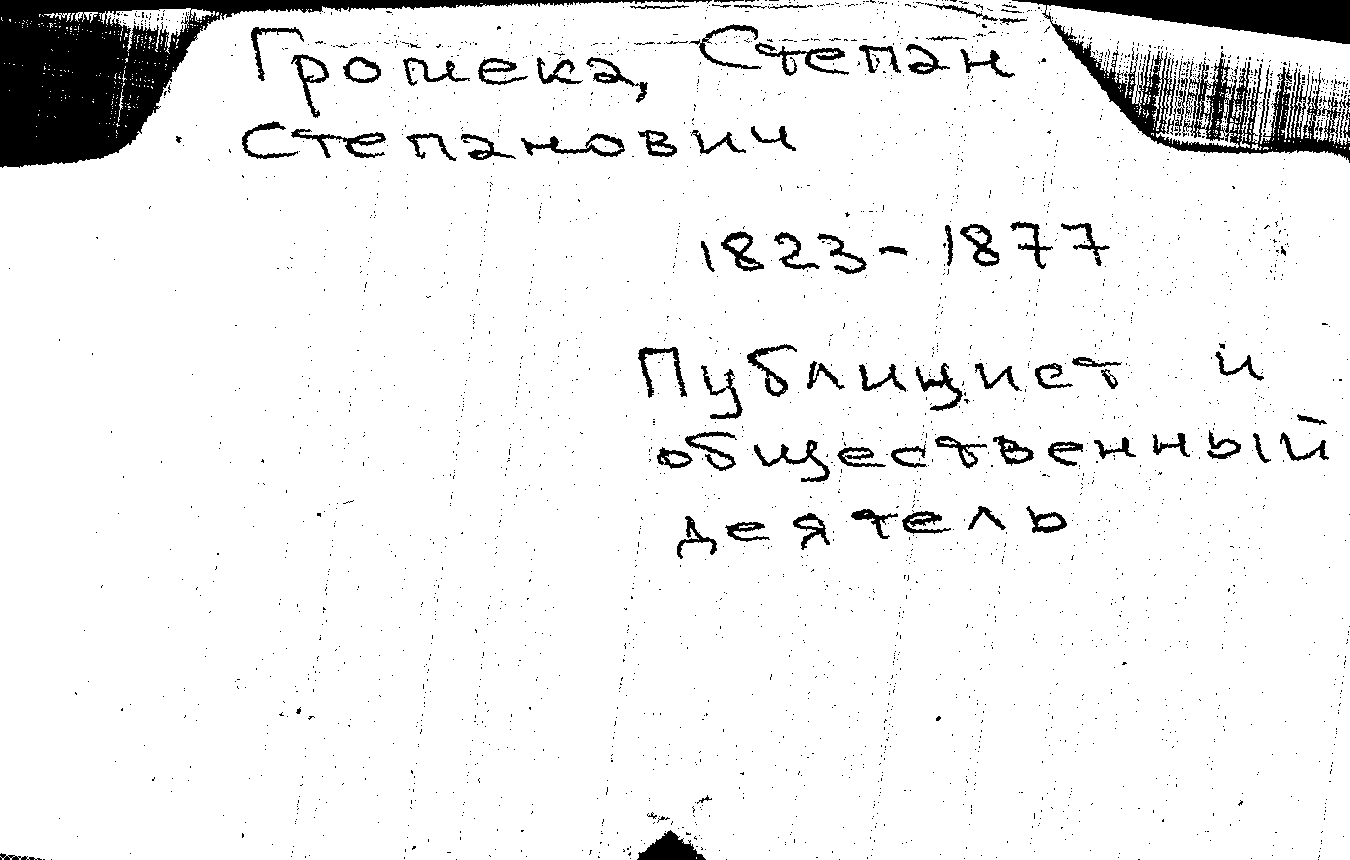 Громека, Степан
Степанович
1823-1877
Публицист и
общественный
деятель